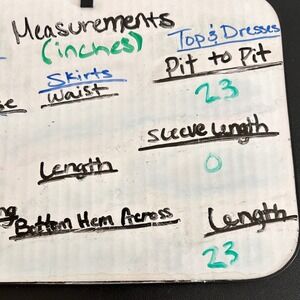 Measurements
(inches)
Tops & Dresses
Skirts
Pit to Pit
Waist
23
Sleeve Length
Length
0
Bottom Hem Across
Length
23